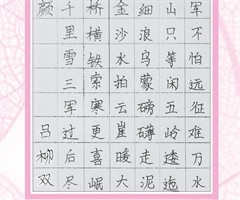 军不怕远征难万水
山只等闲五岭逶迤
细浪乌蒙磅礴走泥
金沙水拍云崖暖大
桥横铁索寒更喜岷
千里雪三军过后尽
颜
吕柳双